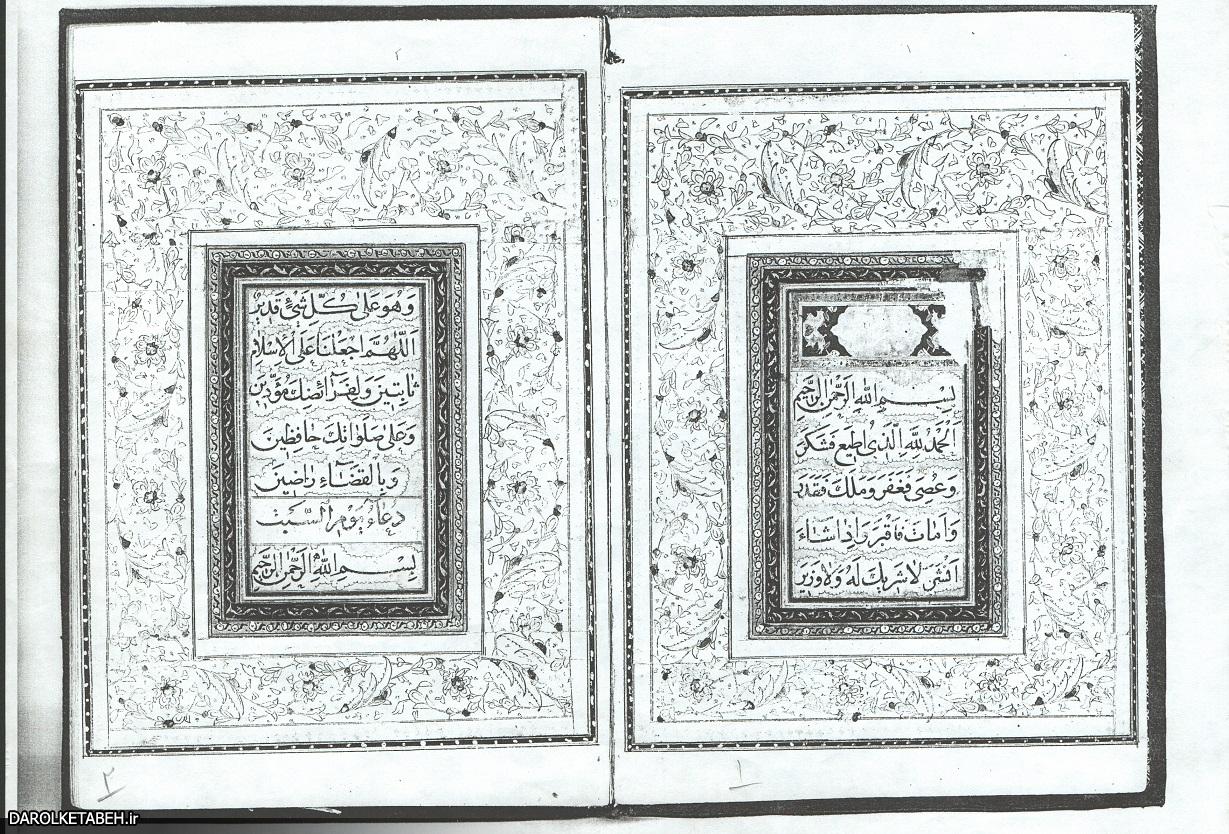 ١
بِسْمِ اللهِ الرَّحْمٰنِ الرَّحِيمِ
اَلْحَمْدُ لِلّٰهِ الَّذِي اُطِيعَ فَشَكَرَ
وَعُصِيَ فَغَفَرَ وَمَلَكَ فَقَدَرَ
وَاَمَاتَ فَاَقْبَرَ وَاِذَا شَاءَ
اَنْشَرَ لَا شَرِيكَ لَهُ وَلَا وَزِيرَ
١
٢
وَهُوَ عَلٰى كُلِّ شَيْئٍ قَدِيرٌ
اَللّٰهُمَّ اجْعَلْنَا عَلَى الْاِسْلَامِ
ثَابِتِينَ وَلِفَرَآئِضِكَ مُؤَدِّينَ
وَعَلٰى صَلَوَاتِكَ حَافِظِينَ
وَبِالْقَضَآءِ رَاضِينَ
دُعَاءُ يَوْمِ السَّبْتِ
بِسْمِ اللهِ الرَّحْمٰنِ الرَّحِيمِ
٢
DAROLKETABEH.ir